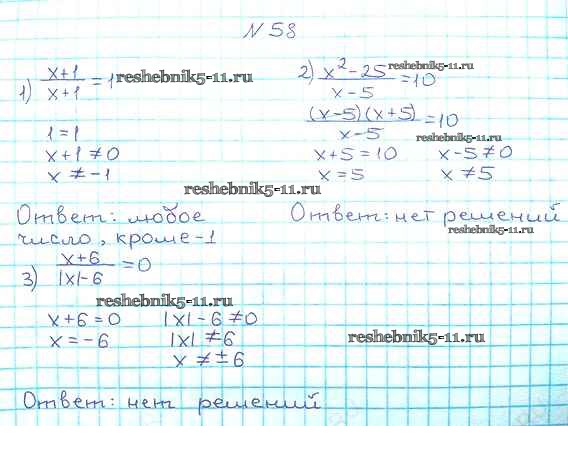 N 58
1) x+1/x+1 = 1 reshebnik5-11.ru
1 = 1
x+1 ≠ 0
x ≠ -1
reshebnik5-11.ru
Ответ: любое
число, кроме -1
2) x²-25/x-5 = 10 reshebnik5-11.ru
(x-5)(x+5)/x-5 = 10
reshebnik5-11.ru
x+5 = 10 x-5 ≠ 0
x = 5 x ≠ 5
Ответ: нет решений
reshebnik5-11.ru
3) x+6/|x|-6 = 0
reshebnik5-11.ru
x+6 = 0 |x|-6 ≠ 0
x = -6 |x| ≠ 6
reshebnik5-11.ru
x ≠ ±6
Ответ: нет решений